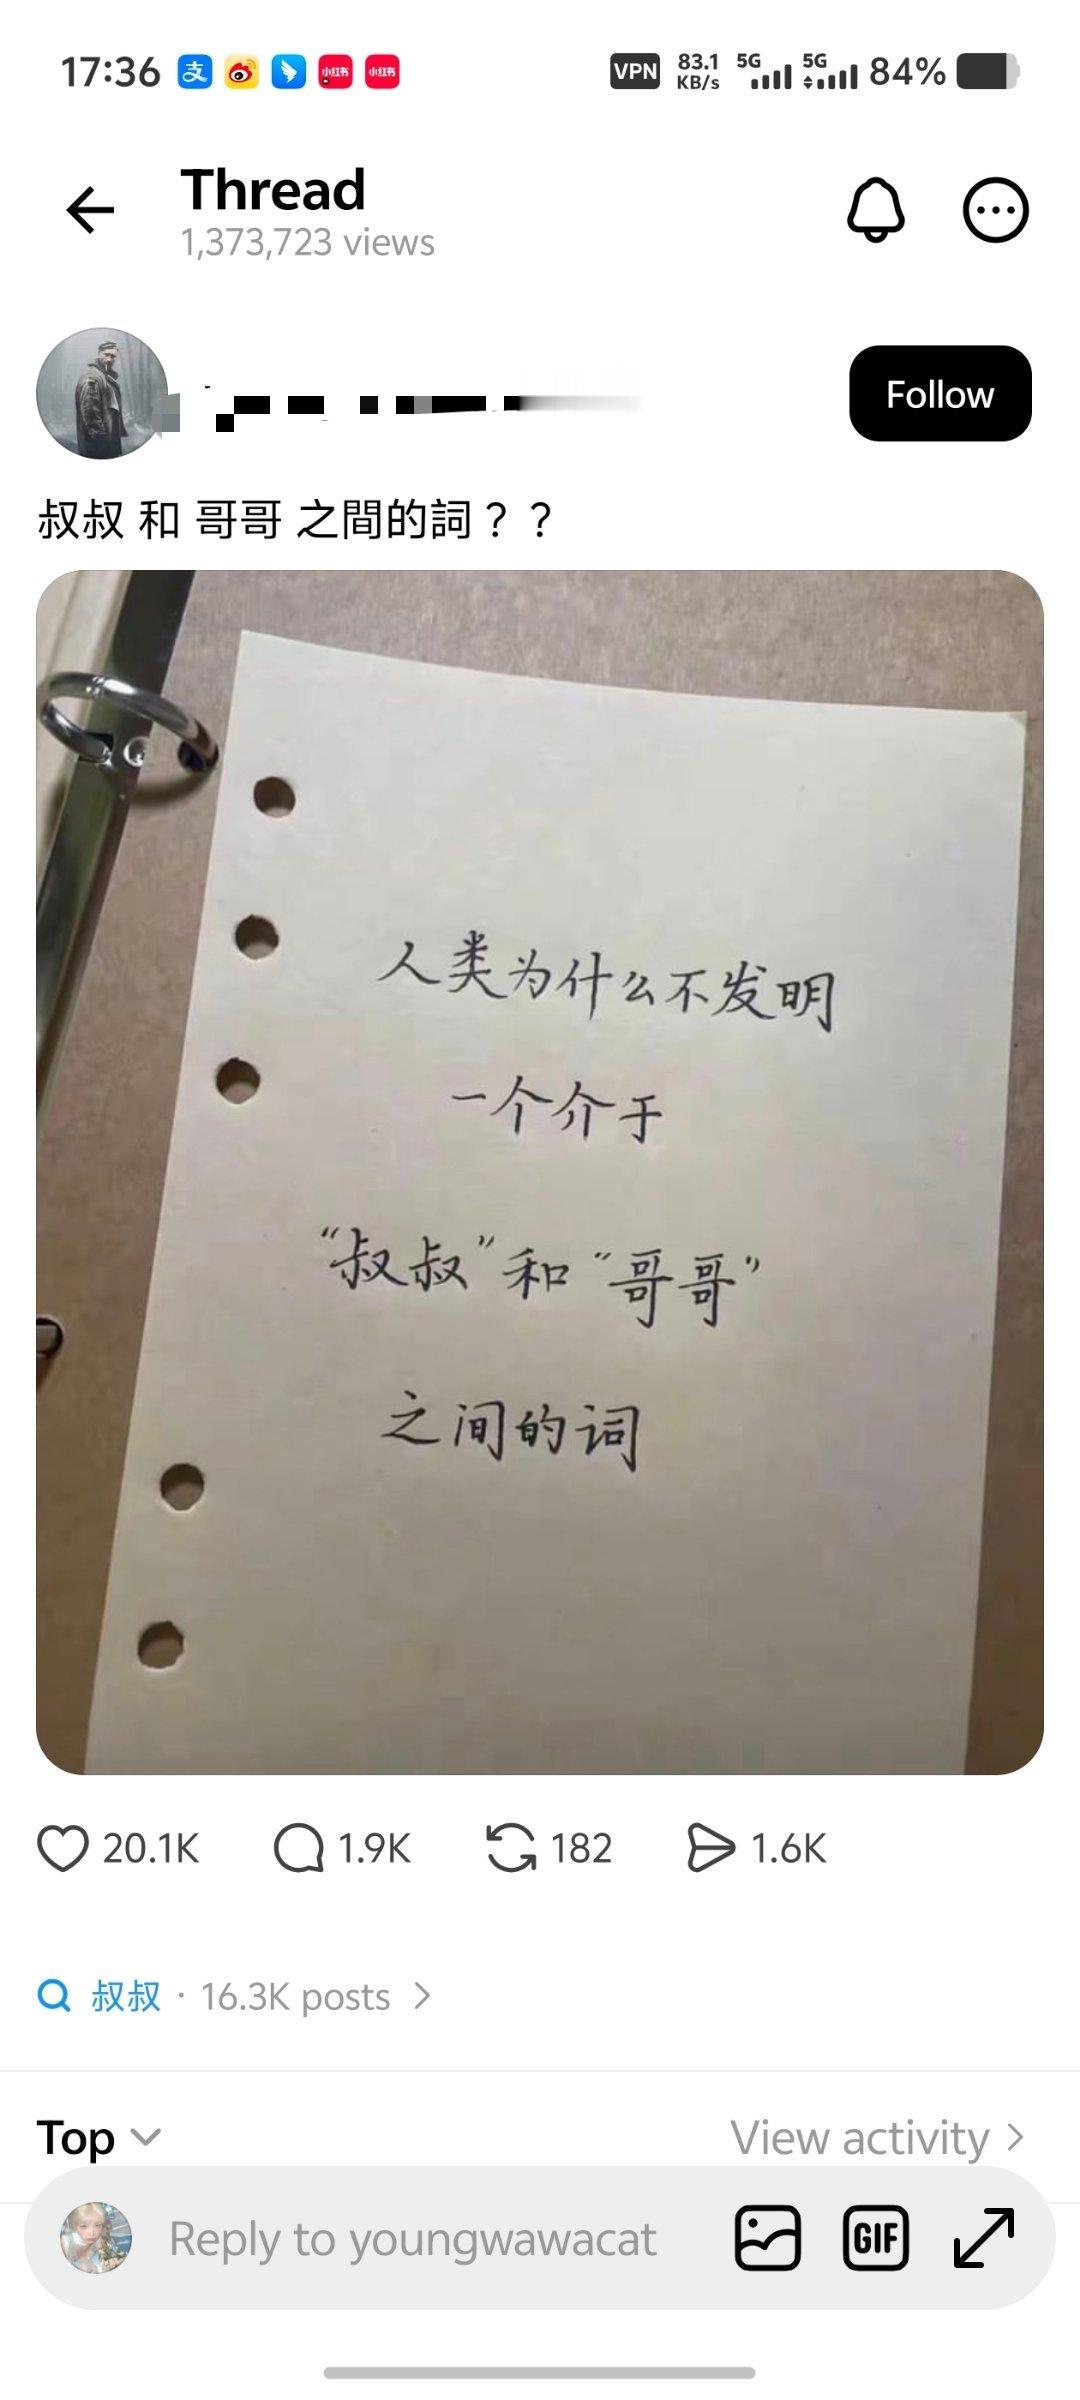 17:36
小红书
小红书
VPN
83.1 KB/s
5G
5G
84%
Thread
1,373,723 views
Follow
叔叔 和 哥哥 之間的詞？？
人类为什么不发明
一个介于
“叔叔”和“哥哥”
之间的词
20.1K
1.9K
182
1.6K
叔叔 · 16.3K posts
Top
View activity
Reply to youngwawacat
GIF